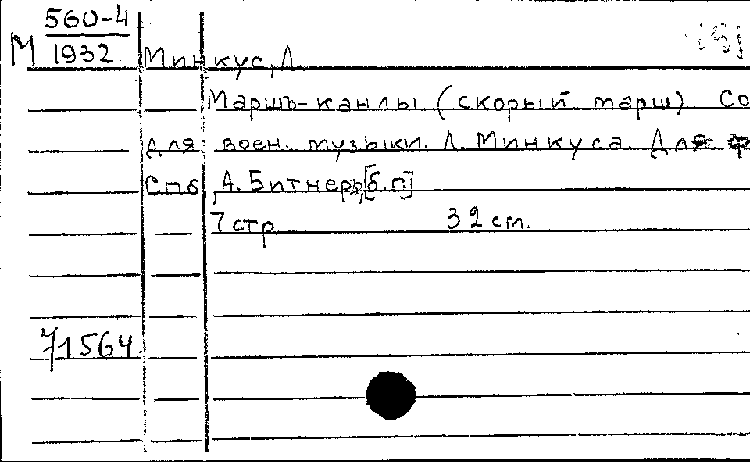 М 560-4
1932
Минкус, Л.
Маршъ-канлы (скорый марш). Со
для воен. музыки. Л. Минкуса. Для ф
Спб, А. Битнеръ, [б.г.]
7 стр. 32 см.
71564